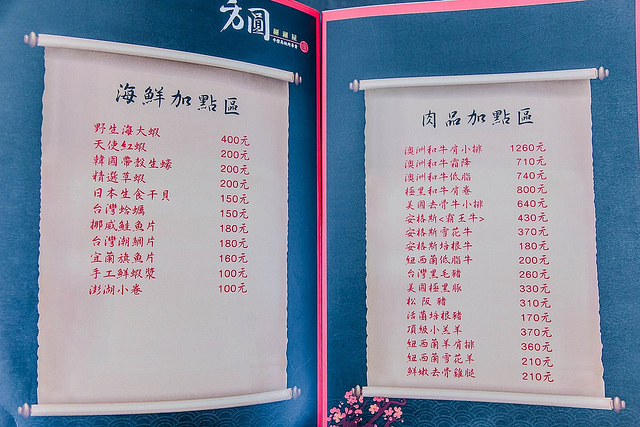 方圓
海鮮加點區
野生海大蝦 400元
天使紅蝦 200元
韓國帶殼生蠔 200元
精選草蝦 200元
日本生食干貝 150元
台灣蛤蠣 150元
挪威鮭魚片 180元
台灣潮鯛片 180元
宜蘭旗魚片 160元
手工鮮蝦漿 100元
澎湖小卷 100元
肉品加點區
澳洲和牛肩小排 1260元
澳洲和牛霜降 710元
澳洲和牛低脂 740元
極黑和牛肩卷 800元
美國去骨牛小排 640元
安格斯<霸王牛> 430元
安格斯雪花牛 370元
安格斯培根牛 180元
紐西蘭低脂牛 200元
台灣黑毛豬 260元
美國極黑豚 330元
松阪豬 310元
活菌培根豬 170元
頂級小羔羊 370元
紐西蘭羊肩排 360元
紐西蘭雪花羊 210元
鮮嫩去骨雞腿 210元